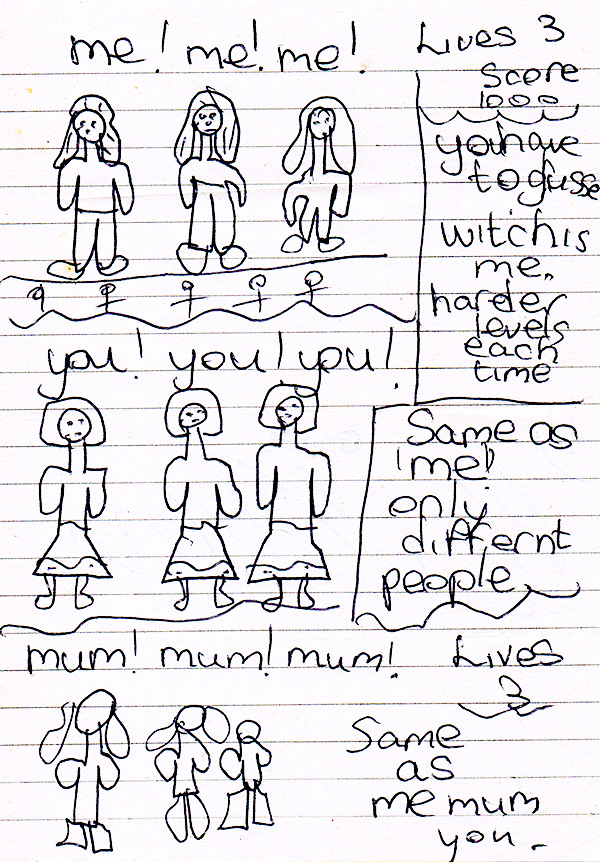 me! me! me!
Lives 3
Score
1000
you have
to gusse
witch is
me.
harder
levels
each
time
you! you! you!
Same as
'me!'
only
differnt
people
mum! mum! mum!
Lives
3
Same
as
me mum
you.